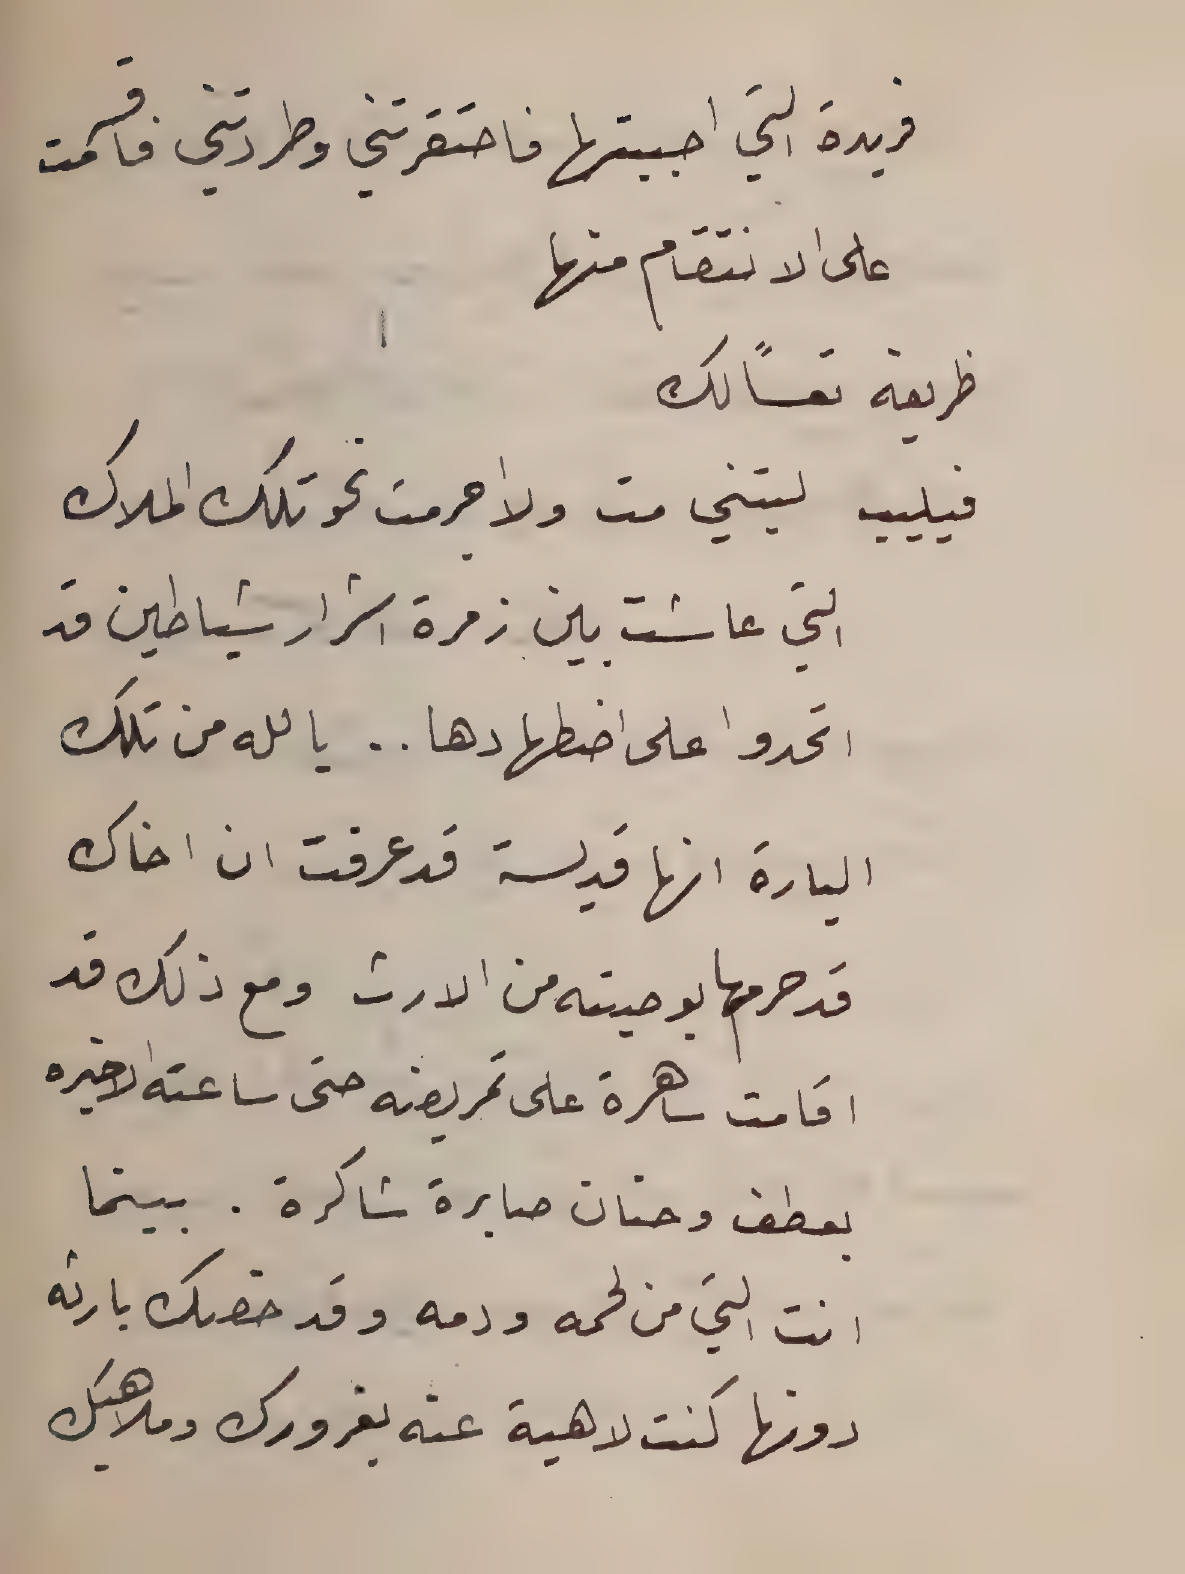 فريدة التي احببتها فاحتقرتني وطردتني فاقسمت
على الانتقام منها
ظريفة تعسًا لك
فيليب ليتني مت ولا اجرمت نحو تلك الملاك
التي عاشت بين زمرة اشرار شياطين قد
اتحدوا على اضطهادها .. يا لله من تلك
البارة انها قديسة قد عرفت ان اخاك
قد حرمها بوصيته من الارث ومع ذلك قد
اقامت ساهرة على تمريضه حتى ساعته الاخيره
بعطف وحنان صابرة شاكرة . بينما
انت التي من لحمه ودمه وقد خصك بارثه
دونها كنت لاهية عنه بغرورك وملاهيك